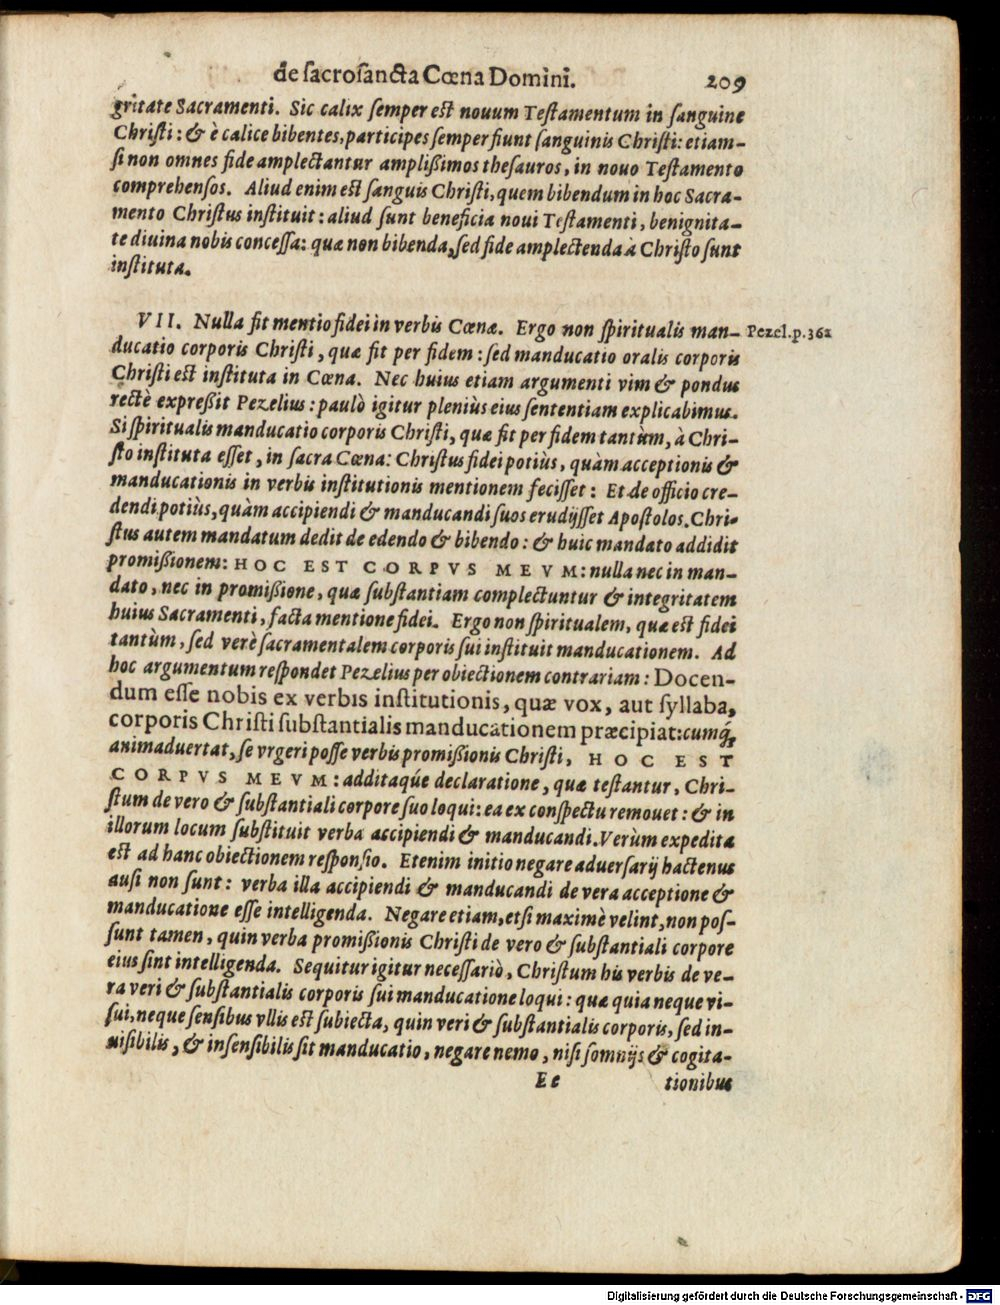 de sacrosancta Cœna Domini. 209
gritate Sacramenti. Sic calix semper est nouum Testamentum in sanguine
Christi: & è calice bibentes, participes semper fiunt sanguinis Christi: etiam-
si non omnes fide amplectantur amplißimos thesauros, in nouo Testamento
comprehensos. Aliud enim est sanguis Christi, quem bibendum in hoc Sacra-
mento Christus instituit: aliud sunt beneficia noui Testamenti, benignita-
te diuina nobis concessa: quæ non bibenda, sed fide amplectenda à Christo sunt
instituta.
VII. Nulla fit mentio fidei in verbis Cœnæ. Ergo non spiritualis man- Pezel.p.362
ducatio corporis Christi, quæ fit per fidem: sed manducatio oralis corporis
Christi est instituta in Cœna. Nec huius etiam argumenti vim & pondus
rectè expreßit Pezelius: paulò igitur pleniùs eius sententiam explicabimus.
Si spiritualis manducatio corporis Christi, quæ fit per fidem tantùm, à Chri-
sto instituta esset, in sacra Cœna: Christus fidei potiùs, quàm acceptionis &
manducationis in verbis institutionis mentionem fecisset: Et de officio cre-
dendi potiùs, quàm accipiendi & manducandi suos erudijsset Apostolos. Chri-
stus autem mandatum dedit de edendo & bibendo: & huic mandato addidit
promißionem: HOC EST CORPVS MEVM: nulla nec in man-
dato, nec in promißione, quæ substantiam complectuntur & integritatem
huius Sacramenti, facta mentione fidei. Ergo non spiritualem, quæ est fidei
tantùm, sed verè sacramentalem corporis sui instituit manducationem. Ad
hoc argumentum respondet Pezelius per obiectionem contrariam: Docen-
dum esse nobis ex verbis institutionis, quæ vox, aut syllaba,
corporis Christi substantialis manducationem præcipiat: cumq́;
animaduertat, se vrgeri posse verbis promißionis Christi, HOC EST
CORPVS MEVM: additaqúe declaratione, quæ testantur, Chri-
stum de vero & substantiali corpore suo loqui: ea ex conspectu remouet: & in
illorum locum substituit verba accipiendi & manducandi. Verùm expedita
est ad hanc obiectionem responsio. Etenim initio negare aduersarij hactenus
ausi non sunt: verba illa accipiendi & manducandi de vera acceptione &
manducatione esse intelligenda. Negare etiam, etsi maximè velint, non pos-
sunt tamen, quin verba promißionis Christi de vero & substantiali corpore
eius sint intelligenda. Sequitur igitur necessariò, Christum his verbis de ve-
ra veri & substantialis corporis sui manducatione loqui: quæ quia neque vi-
sui, neque sensibus vllis est subiecta, quin veri & substantialis corporis, sed in-
uisibilis, & insensibilis sit manducatio, negare nemo, nisi somnijs & cogita-
Ee tionibus
Digitalisierung gefördert durch die Deutsche Forschungsgemeinschaft - DFG